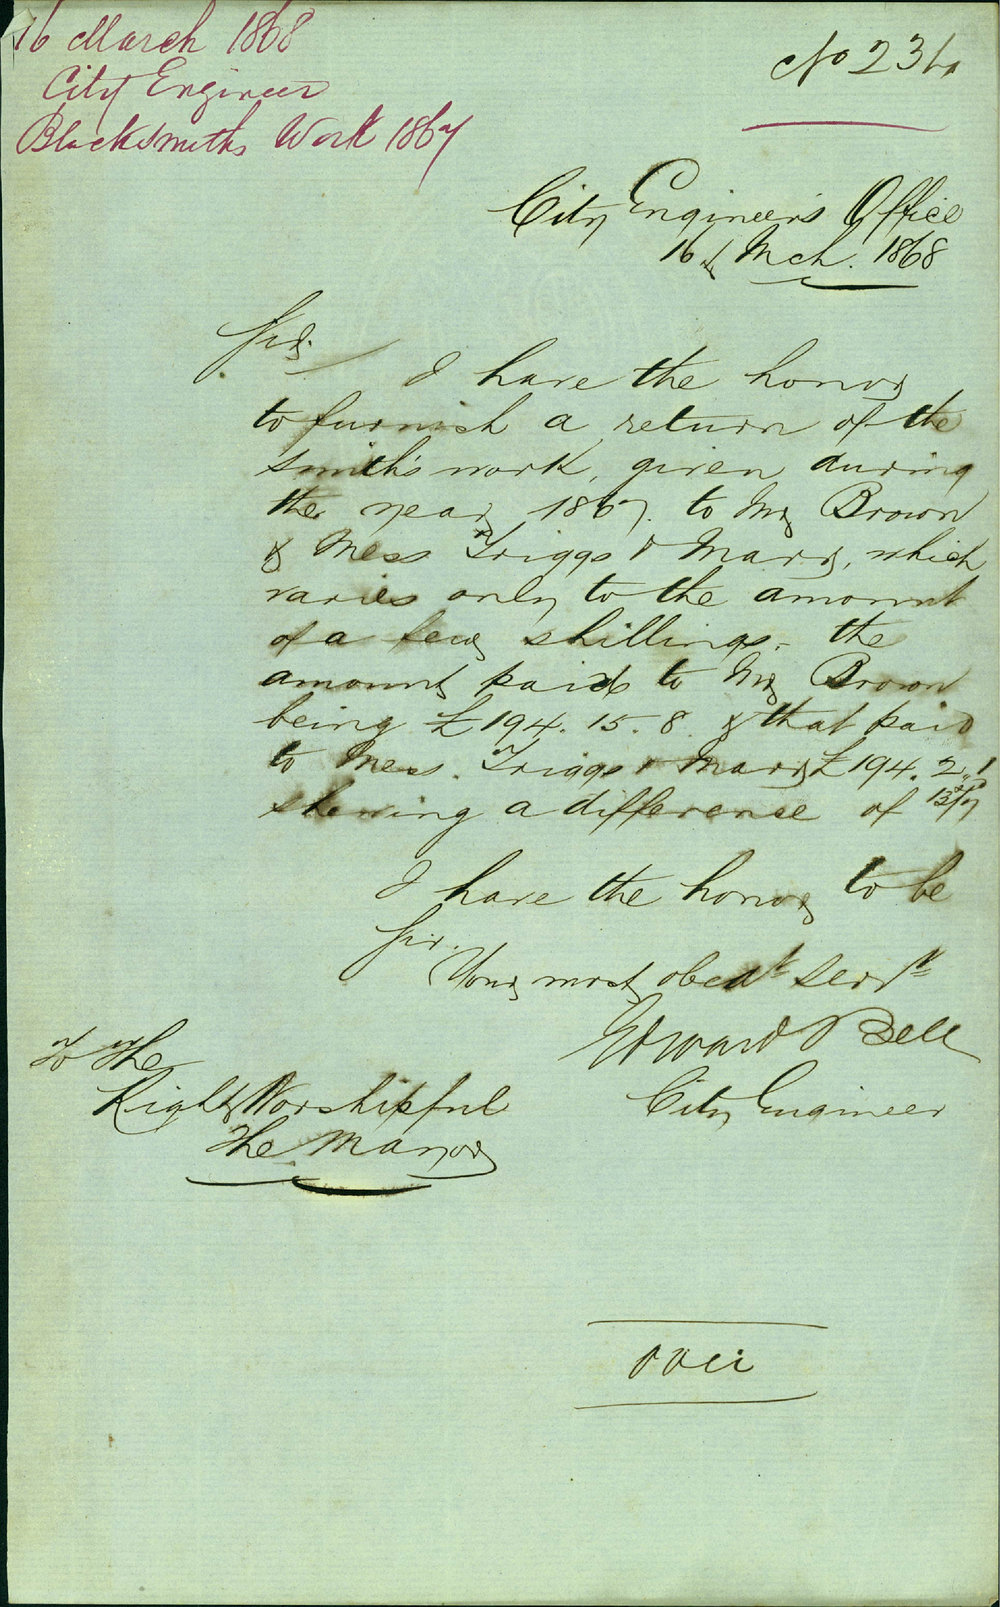 16 March 1868
City Engineer
Blacksmiths Work 1867
No 236
City Engineer's Office
16th Mch. 1868
Sir,
I have the honor
to furnish a return of the
smith's work, given during
the year 1867. to Mr Brown
& Mess Triggs & Marr, which
varies only to the amount
of a few shillings. the
amount paid to Mr Brown
being £194. 15. 8. & that paid
to Mess. Triggs & Marr £194. 2. 1
shewing a difference of 13/7
I have the honor to be
Sir.
Your most obedt servt
Edward Bell
City Engineer
To The
Right Worshipful
The Mayor